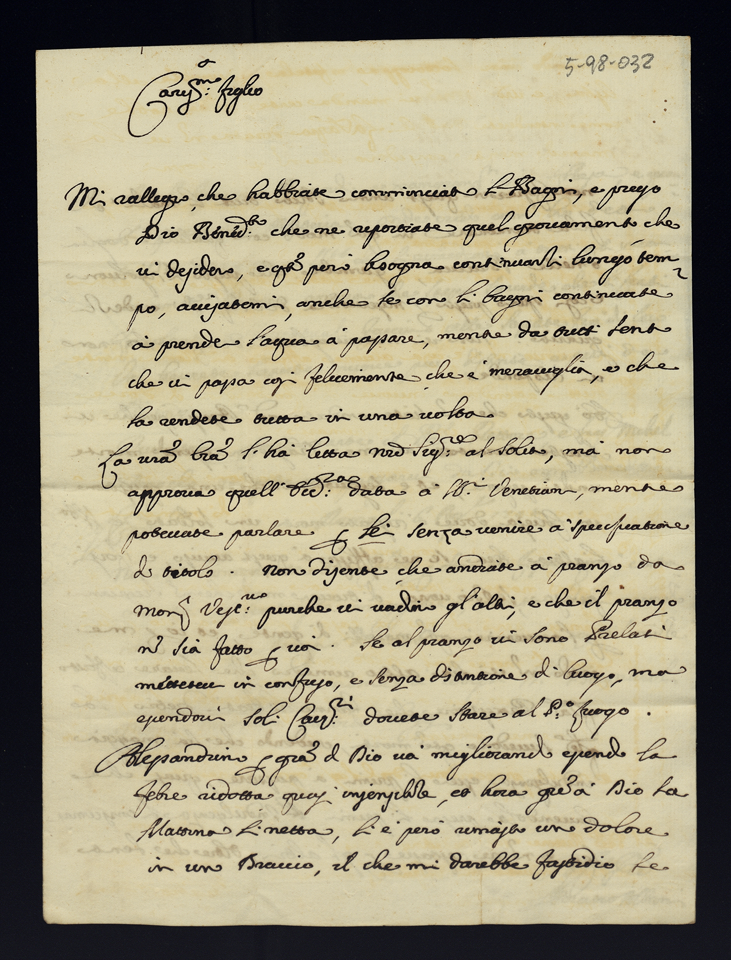 5-98-032
Cariss.mo figlio
Mi rallegro, che habbiate comminciato li Bagni, e prego
Dio Bened.to che ne reportiate quel giovamento che
vi desidero, e q.to però bisogna continuarli lungo tem-
po, avisatemi, anche se con li bagni continuate
à prender l'acqua à passare, mentre da tutti sento
che vi passa così felicemente che è meraviglia, e che
la rendete tutta in una volta
La vra lra l'hà letta nro Sig.re al solito, mà non
approva quell' data à Veneziani, mentre
potevate parlare p Lei senza venire à specificatione
di titolo. Non dissente che andiate à pranzo da
mons Vesc.vo purche vi vadin gl'altri, e che il pranzo
n sia fatto p voi. Se al pranzo vi sono Prelati
mettetevi in confuso, e senza distintione di luogo, ma
essendovi soli Cav.ri dovete stare al P.o luogo.
Alessandrino p gra di Dio và migliorando essendo la
febre ridotta quasi insensibile, et hora gra à Dio la
Mattina è netta, li è però rimasto un dolore
in un Braccio, il che mi darebbe fastidio se